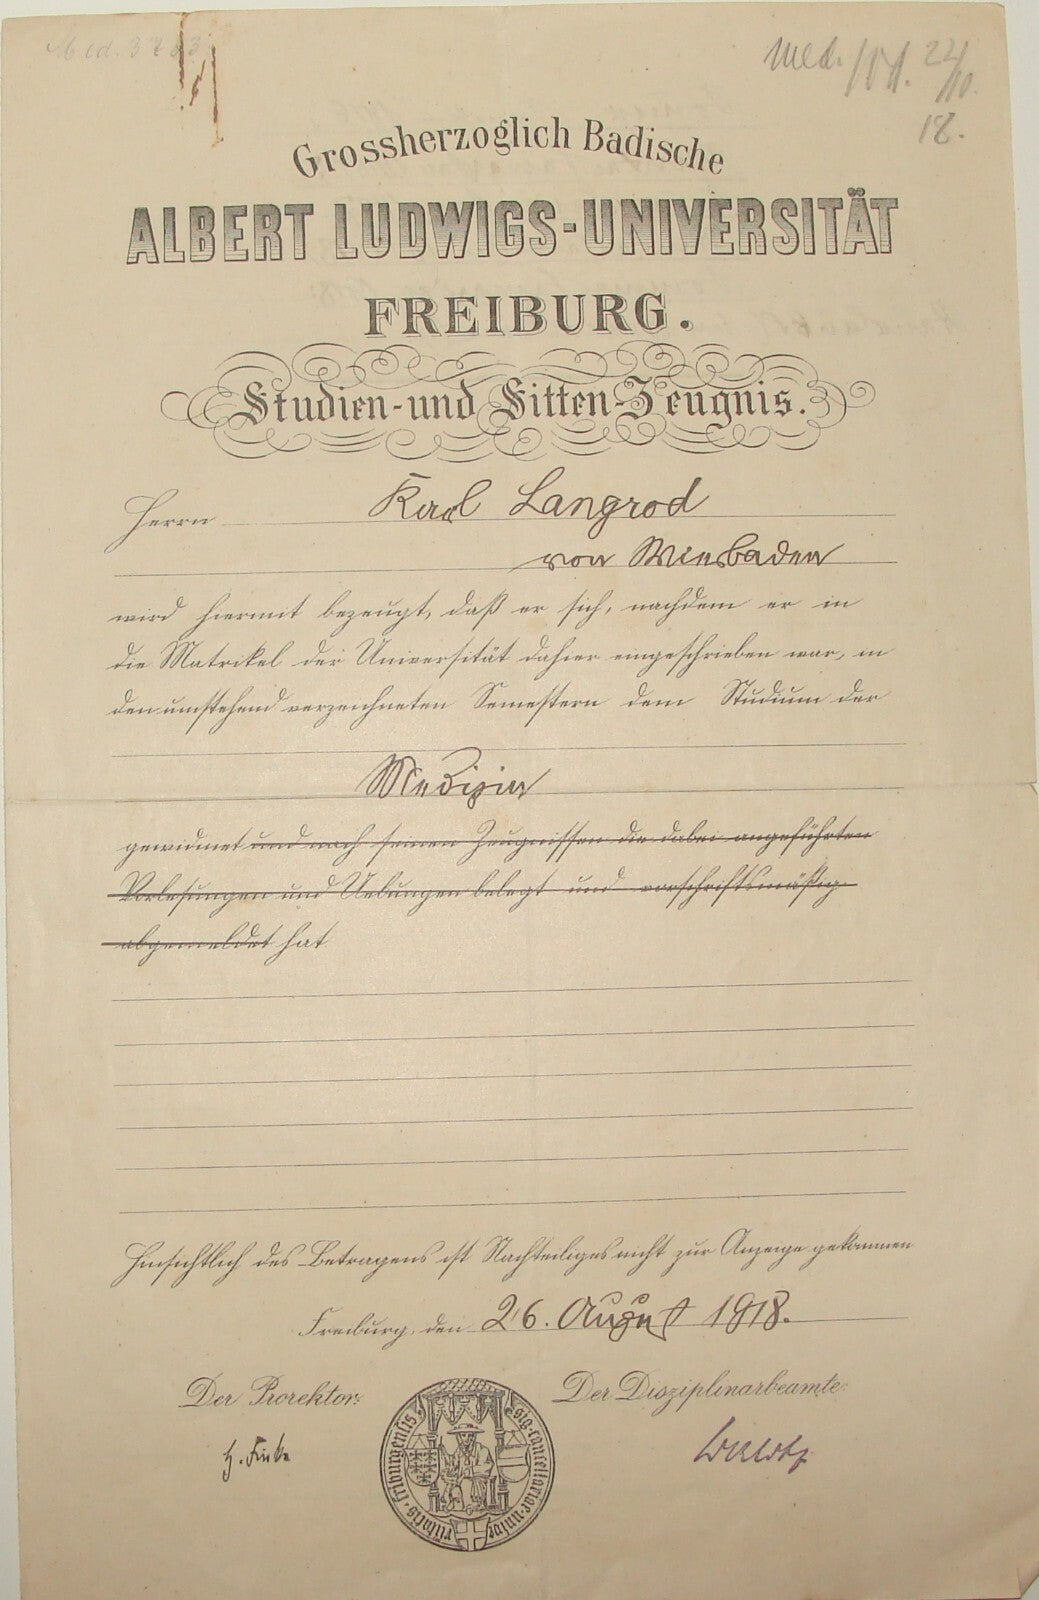 Med. 37
med. 22/10.
18.
Grossherzoglich Badische
ALBERT LUDWIGS-UNIVERSITÄT
FREIBURG.
Studien- und Sitten-Zeugnis.
Herrn Karl Langrod
von Wiesbaden
wird hiermit bezeugt, daß er sich, nachdem er in
die Matrikel der Universität dahier eingeschrieben war, in
den umstehend verzeichneten Semestern dem Studium der
Medizin
gewidmet und nach seinen Zeugnissen die dabei angeführten
Vorlesungen und Uebungen belegt und vorschriftsmäßig
abgemeldet hat
Hinsichtlich des Betragens ist Nachteiliges nicht zur Anzeige gekommen
Freiburg, den 26. August 1918.
Der Prorektor: Der Disziplinarbeamte:
H. Finke
sig. cancellariae univer
sitatis friburgensis